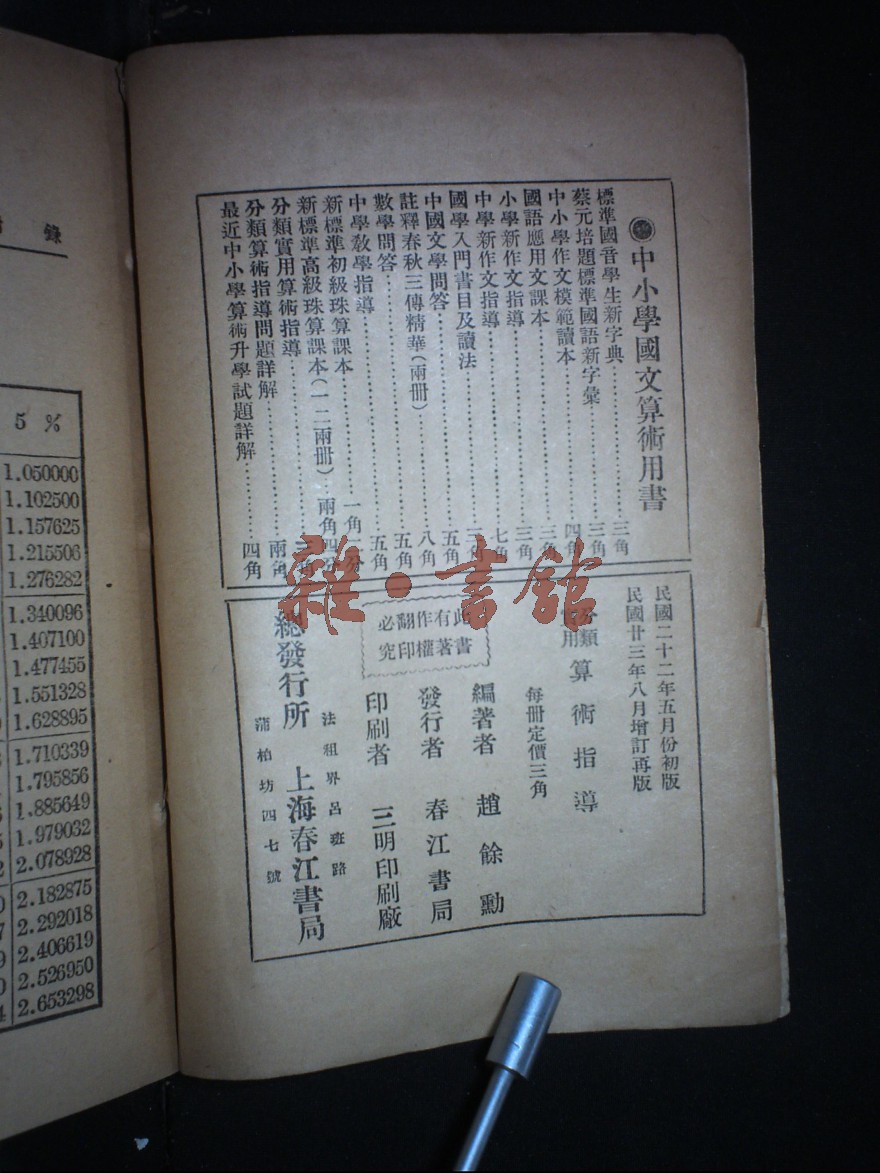 中小學國文算術用書
標準國音學生新字典………三角
蔡元培題標準國語新字彙………三角
中小學作文模範讀本………四角
國語應用文課本………三角
小學新作文指導………三角
中學新作文指導………七角
國學入門書目及讀法………三角
中國文學問答………五角
註釋春秋三傳精華(兩冊)………八角
數學問答………五角
中學敎學指導………五角
新標準初級珠算課本………一角二分
新標準高級珠算課本(一二兩冊) 兩角四分
分類實用算術指導………三角
分類算術指導問題詳解………兩角
最近中小學算術升學試題詳解………四角
民國二十二年五月份初版
民國廿三年八月增訂再版
分類實用 算術指導
每冊定價三角
此書有著作權翻印必究
編著者 趙餘勳
發行者 春江書局
印刷者 三明印刷廠
總發行所 上海春江書局
法租界呂班路
蒲柏坊四七號
雜·書館
錄
5 %
1.050000
1.102500
1.157625
1.215506
1.276282
1.340096
1.407100
1.477455
1.551328
1.628895
1.710339
1.795856
1.885649
1.979032
2.078928
2.182875
2.292018
2.406619
2.526950
2.653298